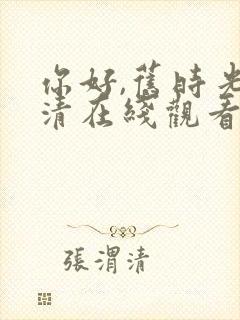 你好,舊時光
清在綫觀看
張渭清